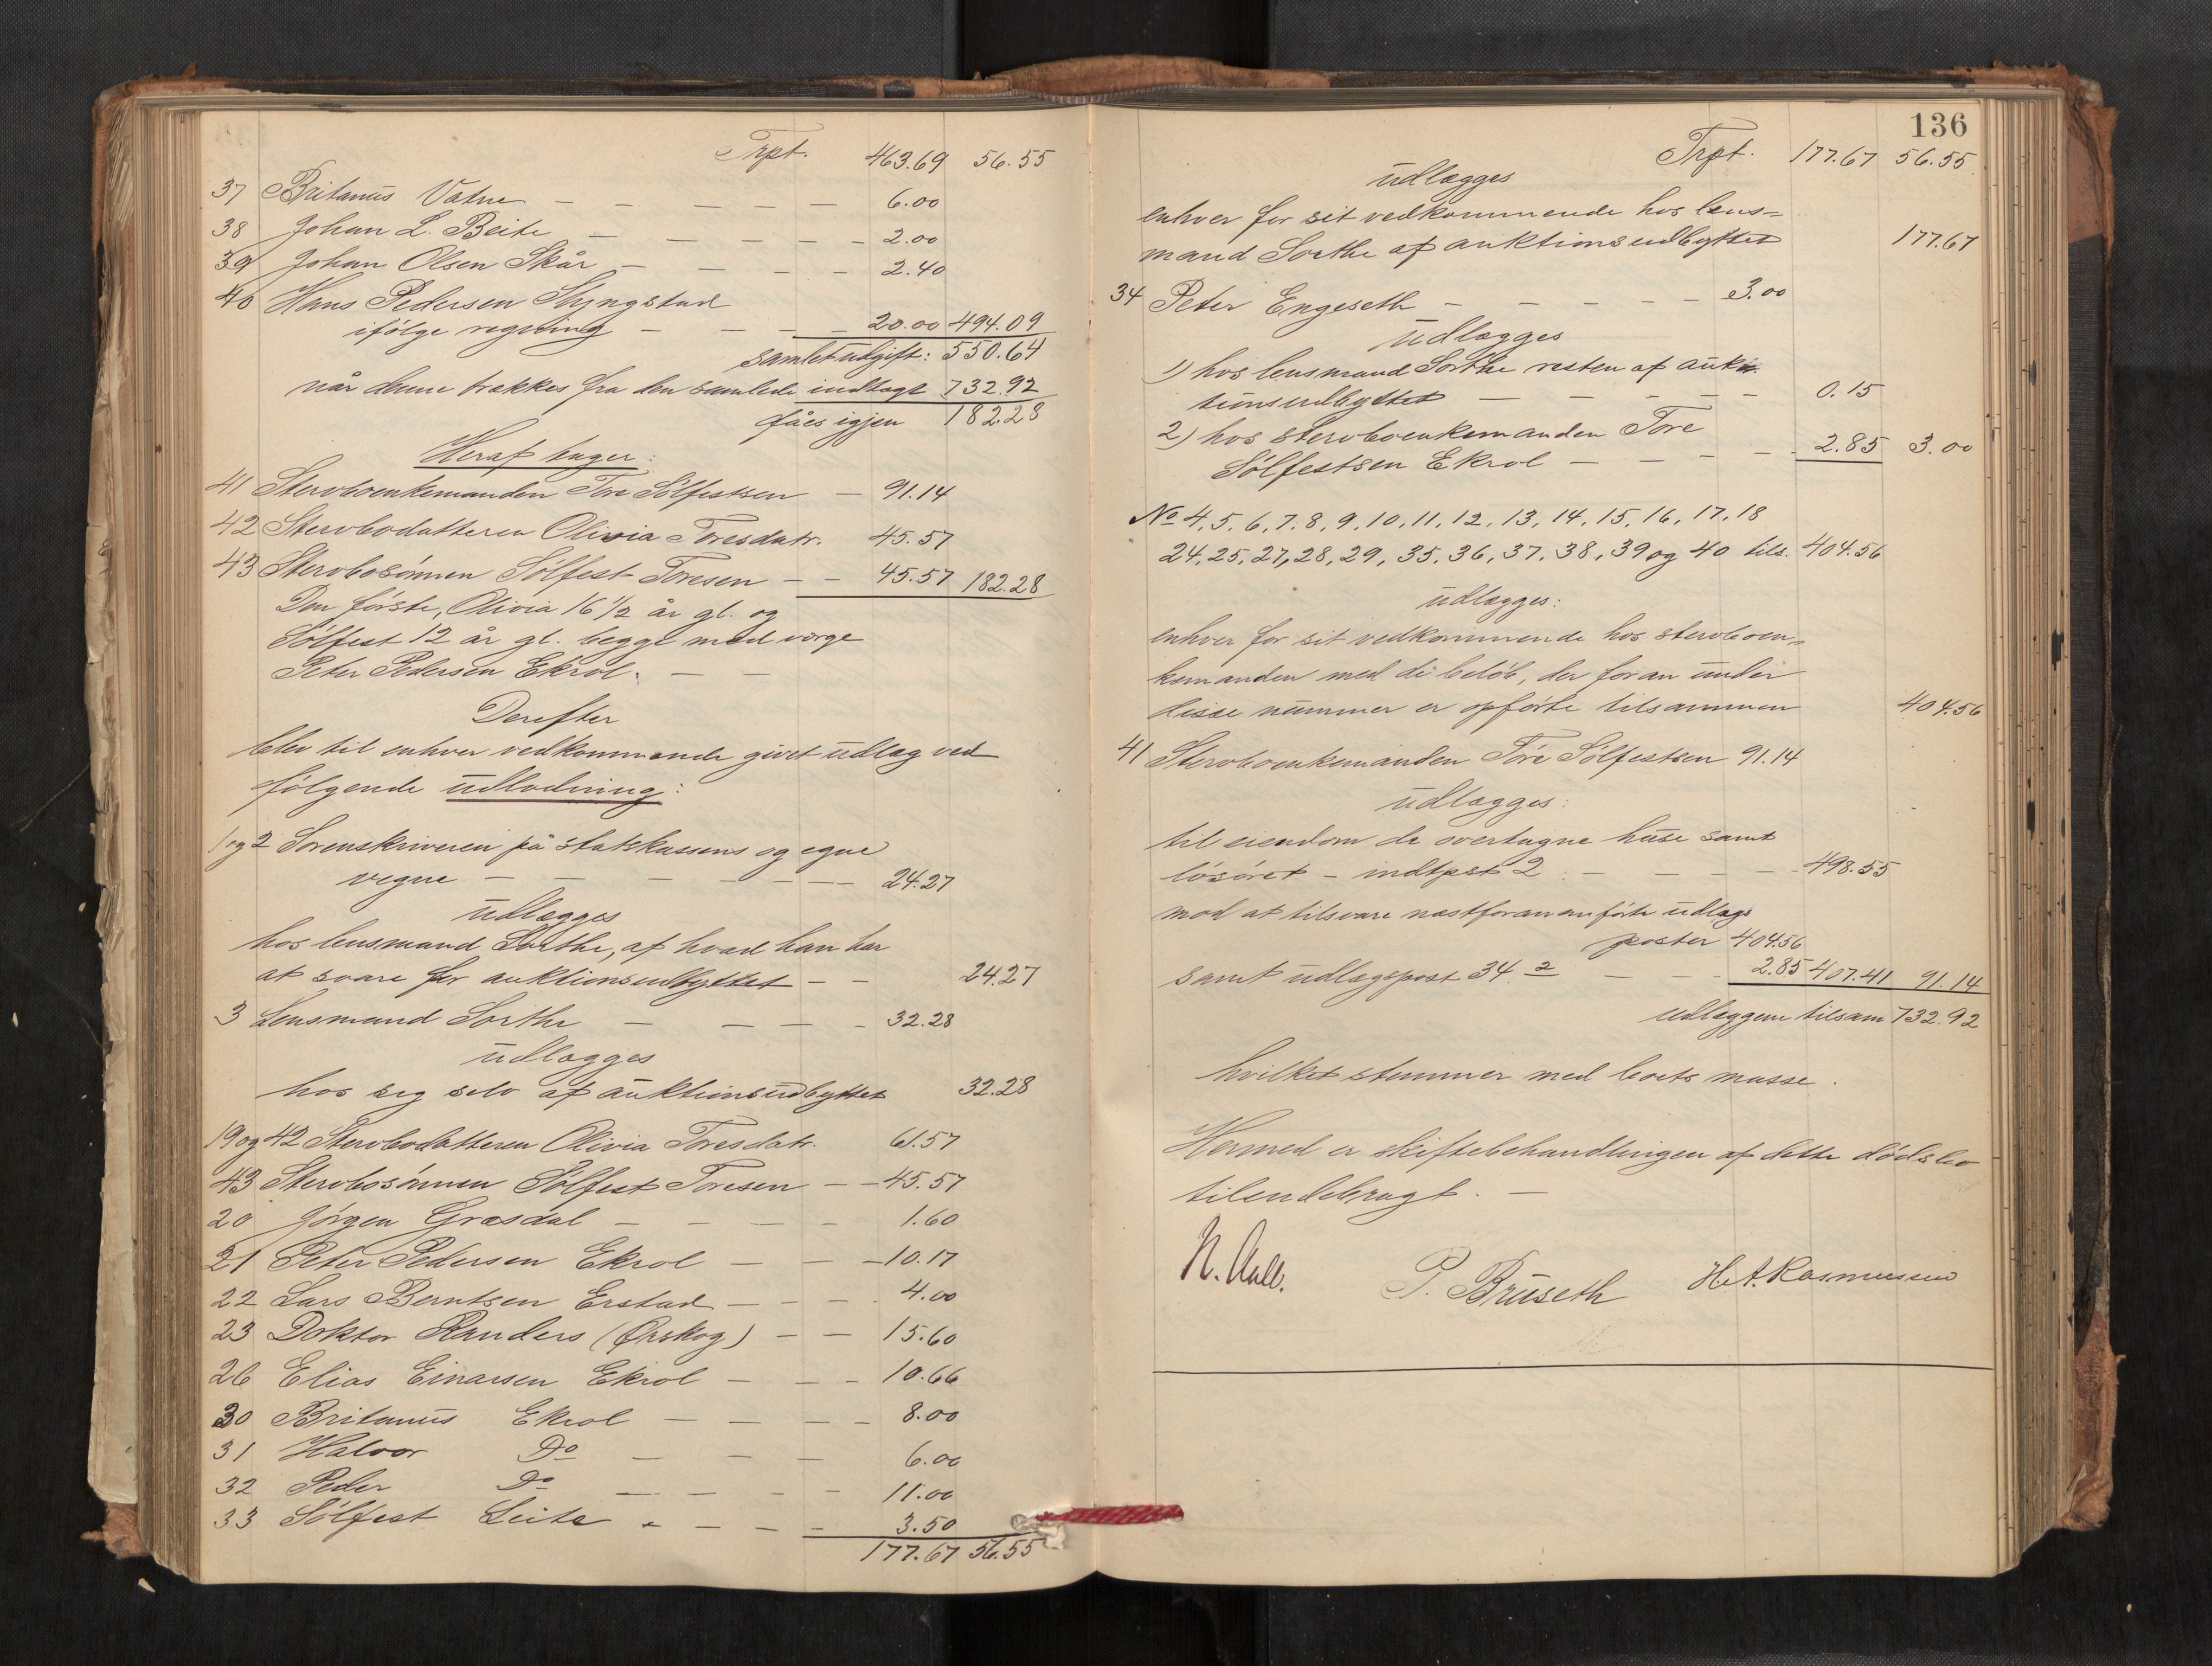 Trpt. 463.69 56.55
37 Britanus Vatne — — — — — 6.00
38 Johan L. Beite — — — — — 2.00
39 Johan Olsen Skår — — — — 2.40
40 Hans Pedersen Slyngstad
ifølge regning — — — — 20.00 494.09
samlet udgift: 550.64
når denne trækkes fra den samlede indtægt 732.92
fåes igjen 182.28
Heraf tager:
41 Stervboenkemanden Tore Sølfestsen — 91.14
42 Stervbodatteren Olivia Toresdatr. 45.57
43 Stervbosønnen Sølfest Toresen — — 45.57 182.28
Den første, Olivia 16 1/2 år gl. og
Sølfest 12 år gl. begge med værge
Peter Pedersen Ekrol. — —
Derefter
blev til enhver vedkommende givet udlæg ved
følgende udlodning:
1 og 2 Sorenskriveren på statskassens og egne
vegne — — — — — — 24.27
udlægges
hos lensmand Sorthe, af hvad han har
at svare for auktionsudbyttet — — 24.27
3 Lensmand Sorthe — — — — 32.28
udlægges
hos sig selv af auktionsudbyttet 32.28
19 og 42 Stervbodatteren Olivia Toresdatr. 61.57
43 Stervbosønnen Sølfest Toresen — — 45.57
20 Jørgen Græsdal — — — — 1.60
21 Peter Pedersen Ekrol — — — 10.17
22 Lars Berntsen Erstad — — — 4.00
23 Doktor Randers (Ørskog) — — 15.60
26 Elias Einarsen Ekrol — — — 10.66
30 Britanus Ekrol — — — — 8.00
31 Halvor Do — — — 6.00
32 Peder Do — — — — 11.00
33 Sølfest Leite — — — — 3.50
177.67 56.55
136
Trpt. 177.67 56.55
udlægges
enhver for sit vedkommende hos lens=
mand Sorthe af auktionsudbyttet 177.67
34 Peter Engeseth — — — — — 3.00
udlægges
1) hos lensmand Sorthe resten af auk=
tionsudbyttet — — — — — 0.15
2) hos stervboenkemanden Tore
Sølfestsen Ekrol — — — — 2.85 3.00
No 4, 5, 6, 7, 8, 9, 10, 11, 12, 13, 14, 15, 16, 17, 18
24, 25, 27, 28, 29, 35, 36, 37, 38, 39 og 40 tils. 404.56
udlægges:
enhver for sit vedkommende hos stervboen=
kemanden med de beløb, der foran under
disse nummer er opførte tilsammen 404.56
41 Stervboenkemanden Tore Sølfestsen 91.14
udlægges:
til eiendom de overtagne huse samt
løsøret — indtpst 2 — — — — 498.55
mod at tilsvare næstforananførte udlægs
poster 404.56
samt udlægspost 34 2 — 2.85 407.41 91.14
udlæggene tilsam 732.92
hvilket stemmer med boets masse.
Hermed er skiftebehandlingen af dette dødsbo
tilendebragt. —
N. Aall. P. Bruseth H. A. Rasmussen